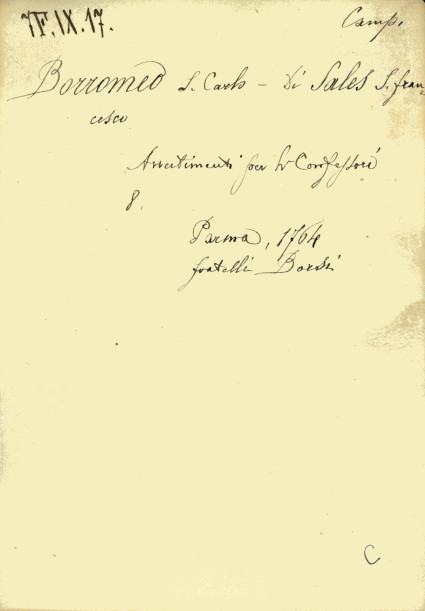 7F.IX.17.
Camp.
Borromeo S. Carlo – Di Sales S. Fran-
cesco
Avvertimenti per li Confessori
8.
Parma, 1764
fratelli Borsi
C